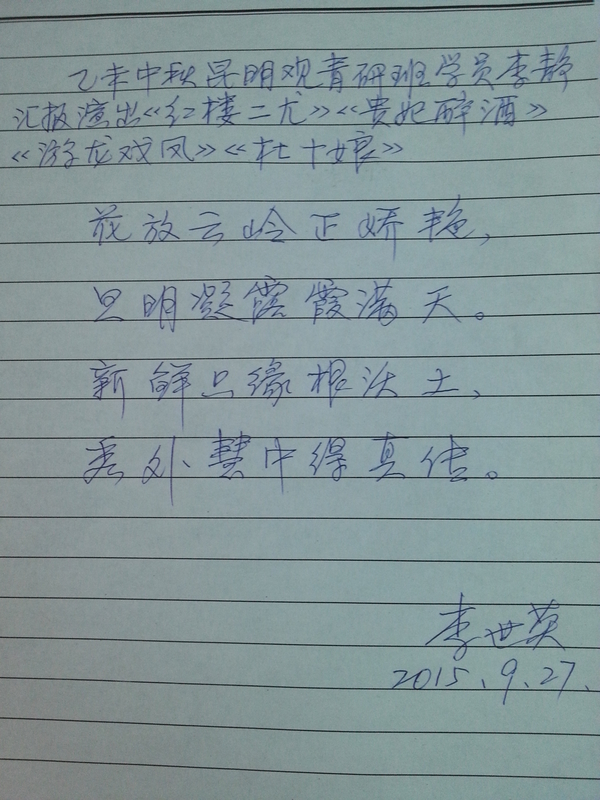 乙未中秋昆明观青研班学员李静
汇报演出《红楼二尤》《贵妃醉酒》
《游龙戏凤》《杜十娘》
花放云岭正娇艳，
旦明凝露霞满天。
新鲜只缘根沃土，
秀外慧中得真传。
李世英
2015.9.27.